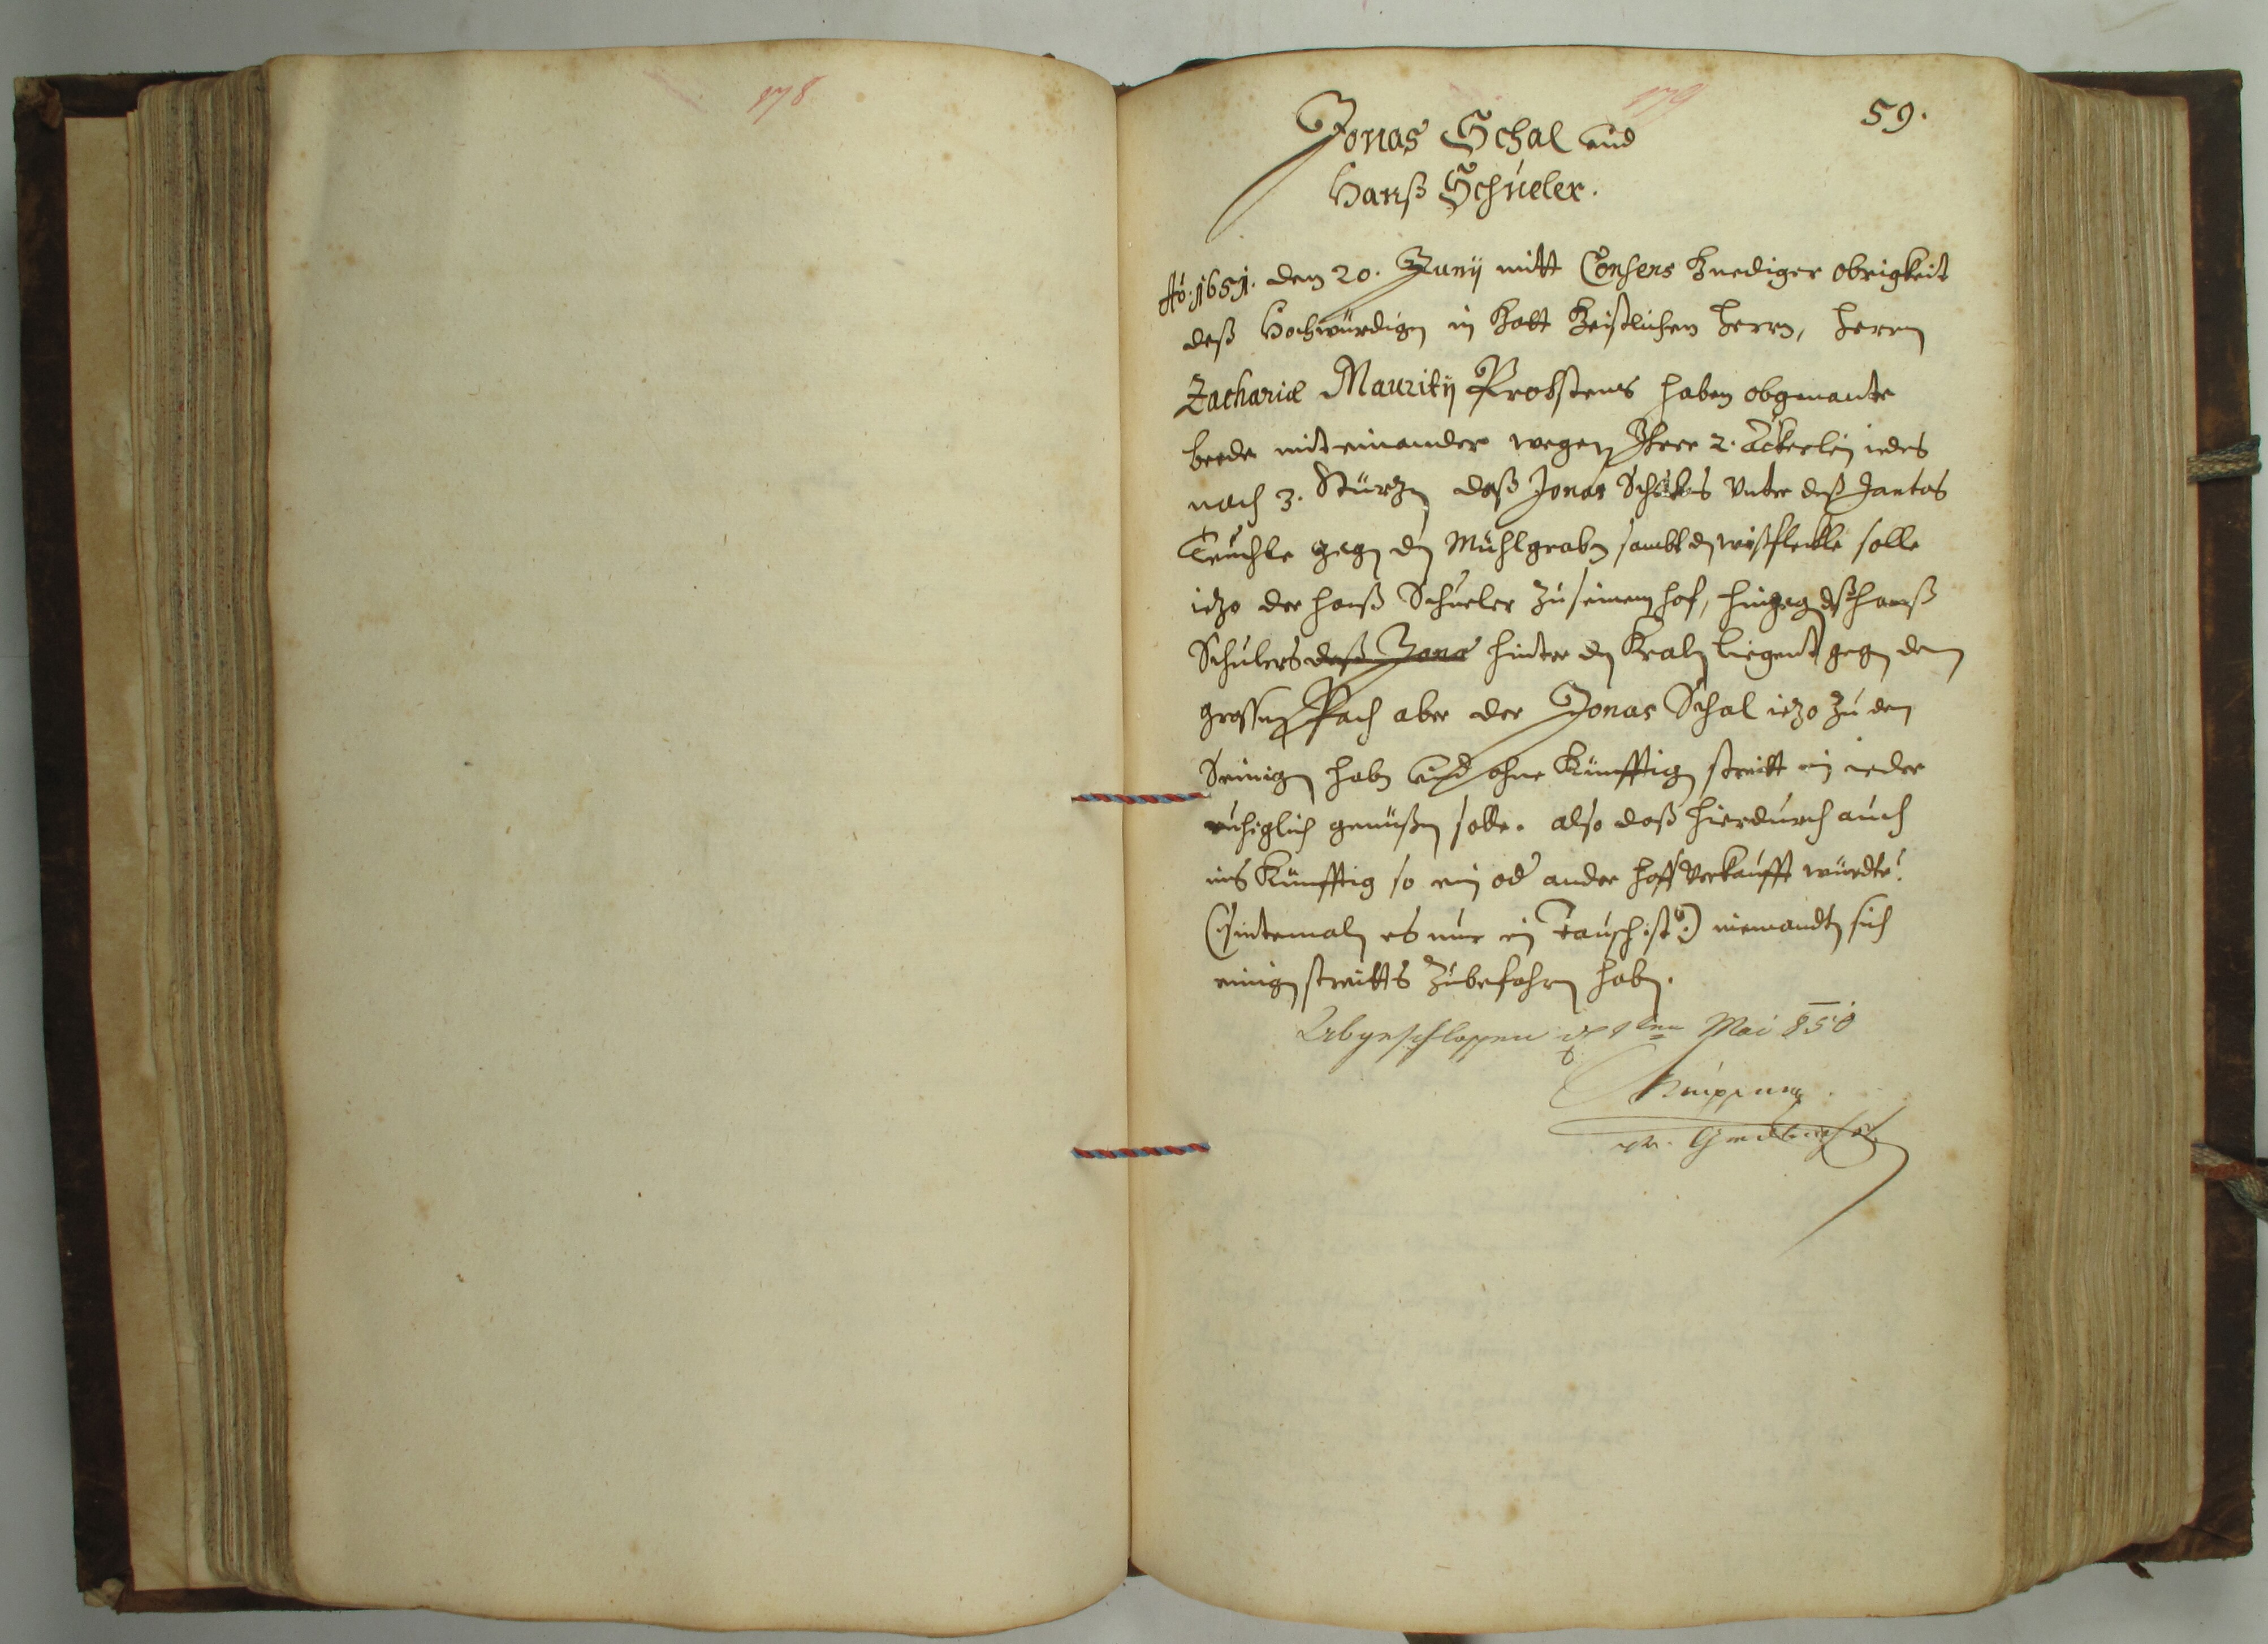 178
179
59.
Jonas Schal und
Hanß Schueler.
Aõ. 1651. den 20. Junij mitt Consens Gnediger obrigkeit
deß Hochwürdigen in Gott Geistlichen Herrn, Herrn
Zachariæ Mauritij Probstens haben obgenante
beede miteinander wegen Ihrer 2. Äckerlen iedes
nach 3. Stürzn daß Jonas Schals unter deß
Teuchle gegn dn Mühlgrabn sambt dn wißfleckle solle
iezo der Hanß Schueler zu seinem hof, hingegn deß Hanß
Schulers deß Jona hinter dn liegent gegn dem
grossen Pach aber der Jonas Schal iezo zu dem
Seinign habn und ohne Künfftign streitt ein ieder
ruhiglich genüßen solle. also daß hierdurch auch
ins Künfftig so ein od ander hoff verkaufft würdte!
(:sintemaln es nur ein Tausch ist:) niemandts sich
einign streitts zubefahrn habn.
Abgeschlossen d 1ten Mai 850